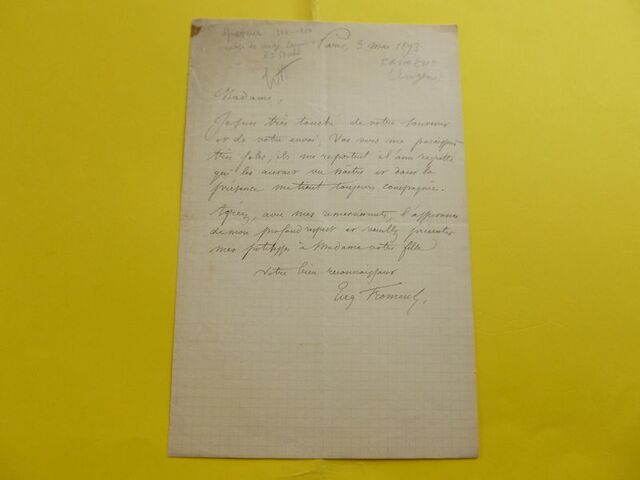 Paris, 3 mai 1893
FROMENT
(Eugène)
Madame,
Je suis très touché de votre souvenir
et de votre envoi, Vos vers me paraissent
très jolis, ils me reportent à l'ami regretté
qui les aurait vu naître et dont la
présence me tient toujours compagnie.
Agréez, avec mes remerciements, l'assurance
de mon profond respect et veuillez présenter
mes politesses à Madame votre fille
Votre bien reconnaissant
Eug Froment,